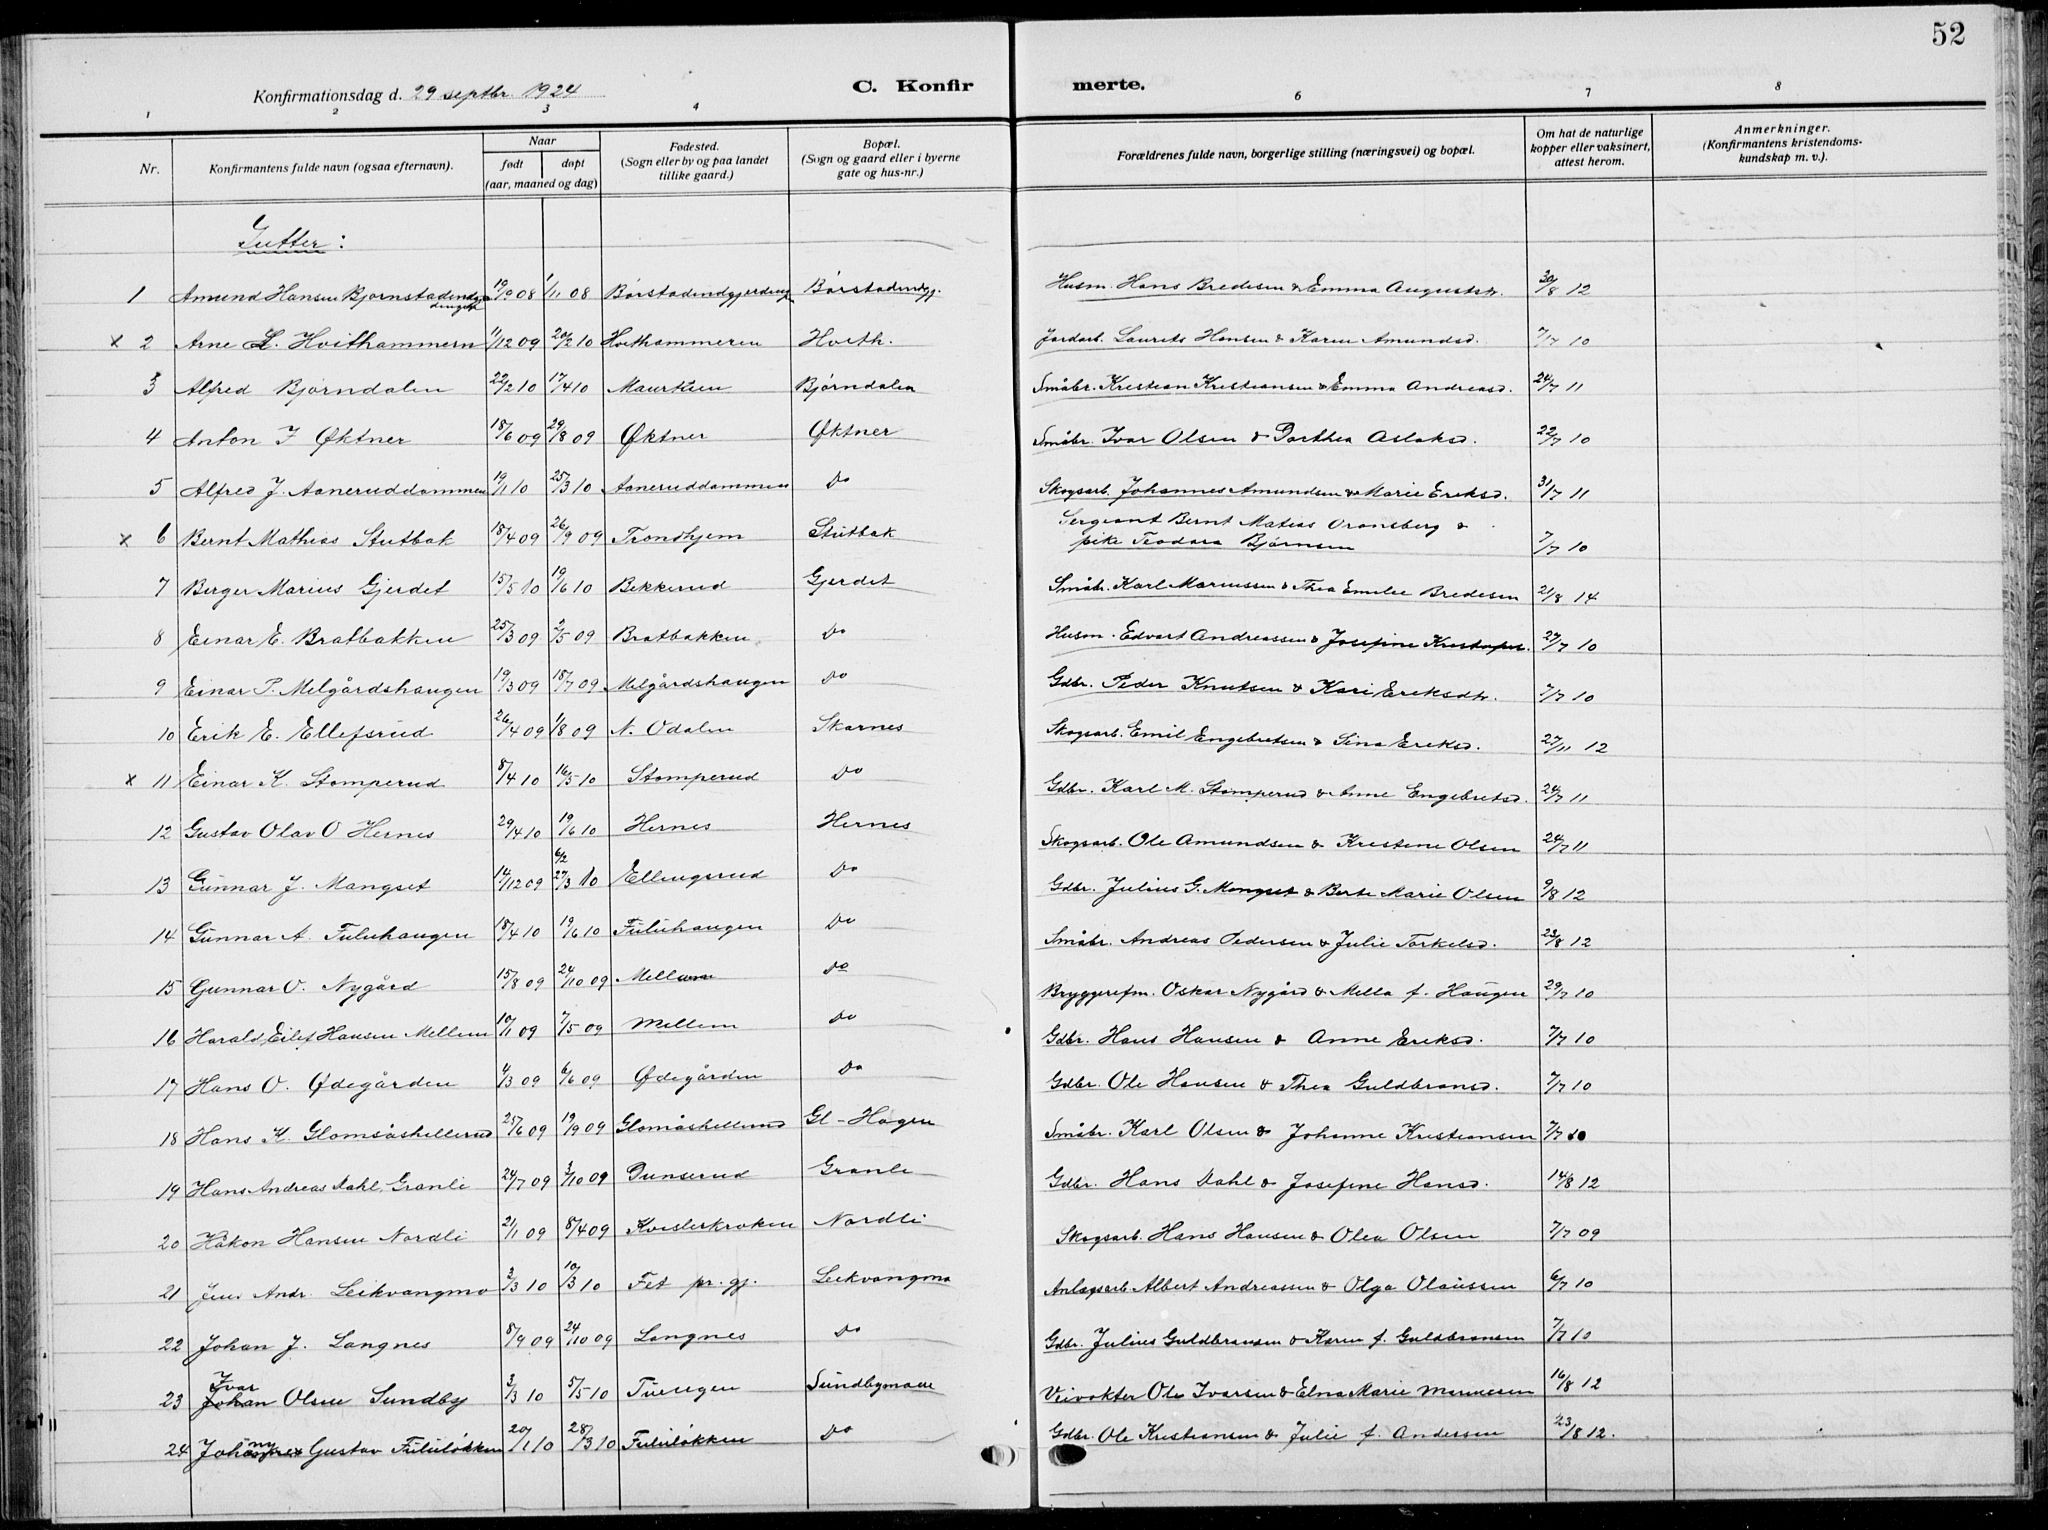 52
Konfirmationsdag d. 29 septbr. 1924 C. Konfir merte.
1 2 3 4 6 7 8
Nr. Konfirmantens fulde navn (ogsaa efternavn). Naar født døpt (aar, maaned og dag) Fødested. (Sogn eller by og paa landet tillike gaard.) Bopæl. (Sogn og gaard eller i byerne gate og hus-nr.) Forældrenes fulde navn, borgerlige stilling (næringsvei) og bopæl. Om hat de naturlige kopper eller vaksinert, attest herom. Anmerkninger. (Konfirmantens kristendoms-kundskap m. v.).
Gutter:
1 Amund Hansen 19/9 08 1/11 08 Børstadindgj. Husm. Hans Bredesen & Emma Augustdr. 30/8 12
x 2 Arne L. Hvithammern 11/12 09 20/2 10 Hvithammeren Hvith. Jordarb. Laurits Hansen & Karen Amundsd. 7/7 10
3 Alfred Bjørndalen 22/2 10 17/4 10 Bjørndalen Småbr. Kristian Kristiansen & Emma Andreasd. 24/7 11
4 Anton I Øktner 18/6 09 29/8 09 Øktner Øktner Småbr. Ivar Olsen & Dorthea Aslaksd. 22/7 10
5 Alfred J. Aaneruddammen 19/1 10 25/3 10 Aaneruddammen Do Skogsarb. Johannes Amundsen & Marie Eriksd. 31/7 11
x 6 Bernt Mathias Stutbak 18/4 09 26/9 09 Trondhjem Stutbak Sergeant Bernt Matias Cronsberg & pike Teodora Bjørnsen 7/7 10
7 Berger Marius Gjerdet 15/5 10 19/6 10 Bekkerud Gjerdet Småbr. Karl Marinussen & Thea Emilie Bredesen 21/8 14
8 Einar E. Bratbakken 25/3 09 2/5 09 Bratbakken Do Husm. Edvart Andreassen & Josefine 27/7 10
9 Einar P. Melgårdshaugen 19/3 09 18/7 09 Melgårdshaugen Do Gdbr. Peder Knutsen & Kari Eriksdtr. 7/7 10
10 Erik E. Ellefsrud 26/4 09 1/8 09 N. Odalen Skarnes Skogsarb. Emil Engebretsen & Sina Eriksd. 27/11 12
x 11 Einar K. Stomperud 8/4 10 16/5 10 Stomperud Do Gdbr. Karl M. Stomperud & Anne Engebretsd. 24/7 11
12 Gustav Olav O Hernes 29/4 10 19/6 10 Hernes Hernes Skogsarb. Ole Amundsen & Kristine Olsen 24/7 11
13 Gunnar J. Mangset 14/12 09 6/2 27/3 10 Ellingsrud Do Gdbr. Julius G. Mangset & Berte Marie Olsen 9/8 12
14 Gunnar A. Fuluhaugen 18/4 10 19/6 10 Fuluhaugen Do Småbr. Andreas Pedersen & Julie Torkelsd. 23/8 12
15 Gunnar O. Nygård 15/8 09 24/10 09 Do Bryggerefm. Oskar Nygård & Mella f. Haugen 29/7 10
16 Harald Eilef Hansen Mellem 10/1 09 7/5 09 Mellem Do Gdbr. Hans Hansen & Anne Eriksd. 7/7 10
17 Hans O. Ødegården 4/3 09 6/6 09 Ødegården Do Gdbr. Ole Hansen & Thea Guldbransd. 7/7 10
18 Hans K. Glomsåshellerud 25/6 09 19/9 09 Glomåshellerud Gl-Hagen Småbr. Karl Olsen & Johanne Kristiansen 7/7 10
19 Hans Andreas Dahl, Granli 24/7 09 3/10 09 Dunserud Granli Gdbr. Hans Dahl & Josefine Hansd. 14/8 12
20 Håkon Hansen Nordli 21/1 09 8/4 09 Kvislerkroken Nordli Skogsarb. Hans Hansen & Olea Olsen 7/7 09
21 Jens Andr. Leikvangmo 3/3 10 10/3 10 Fet pr. gj. Leikvangmo Anlægsarb. Albert Andreassen & Olga Olaussen 6/7 10
22 Johan J. Langnes 8/9 09 24/10 09 Langnes Do Gdbr. Julius Guldbransen & Karen f. Guldbransen 7/7 10
23 Ivar Johan Olsen Sundby 3/3 10 5/5 10 Tuengen Sundbymoen Veivokter Ole Ivarsen & Elna Marie 16/8 12
24 Gustav Fululøkken 20/1 10 28/3 10 Fululøkken Do Gdbr. Ole Kristiansen & Julie f. Andersen 23/8 12.